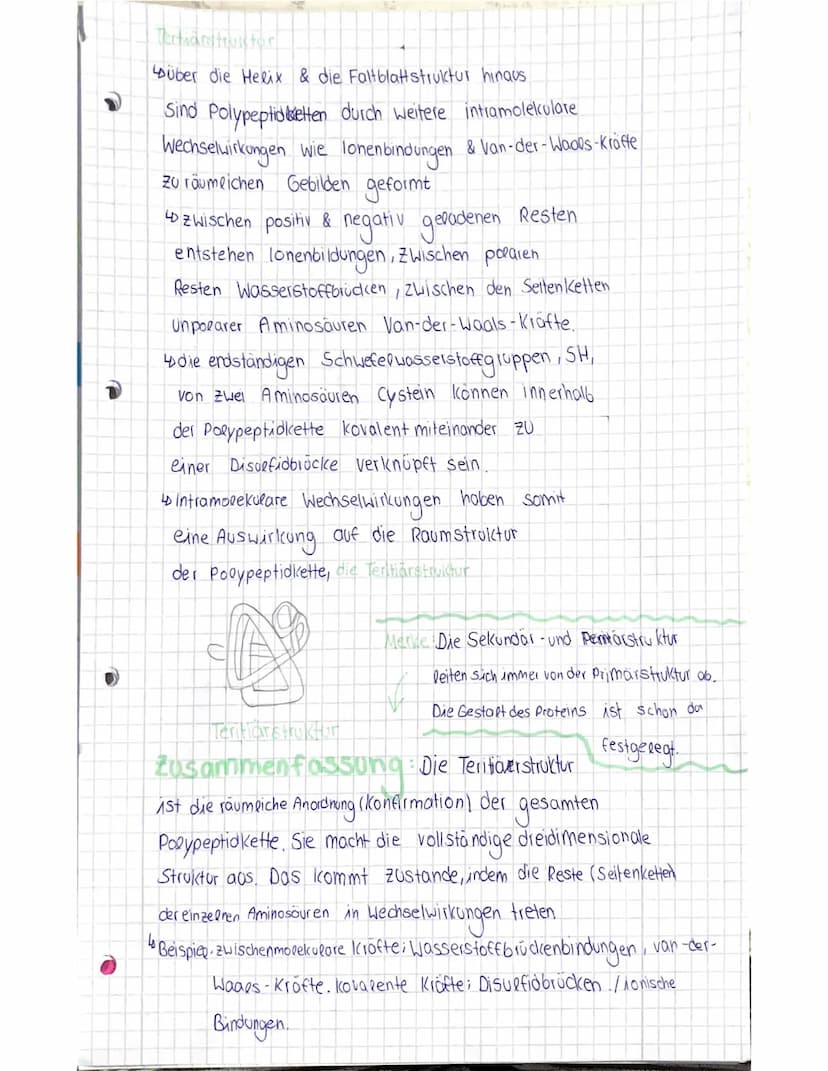 Tertiärstruktur
↳über die Helix & die Faltblattstruktur hinaus
sind Polypeptidketten durch weitere intramolekulare
Wechselwirkungen wie Ionenbindungen & Van-der-Waals-Kräfte
zu räumlichen Gebilden geformt
↳zwischen positiv & negativ geladenen Resten
entstehen Ionenbildungen, zwischen polaren
Resten Wasserstoffbrücken, zwischen den Seitenketten
unpolarer Aminosäuren Van-der-Waals-Kräfte.
↳die endständigen Schwefelwasserstoffgruppen, SH,
von zwei Aminosäuren Cystein können innerhalb
der Polypeptidkette kovalent miteinander zu
einer Disulfidbrücke verknüpft sein.
↳Intramolekulare Wechselwirkungen haben somit
eine Auswirkung auf die Raumstruktur
der Polypeptidkette, die Teritiärstruktur
Merke: Die Sekundär- und struktur
leiten sich immer von der Primärstruktur ab.
Die Gestalt des Proteins ist schon da
festgelegt.
Teritiärstruktur
Zusammenfassung: Die Teritiärstruktur
ist die räumliche Anordnung (Konfirmation) der gesamten
Polypeptidkette. Sie macht die vollständige dreidimensionale
Struktur aus. Das kommt zustande, indem die Reste (Seitenketten)
der einzelnen Aminosäuren in Wechselwirkungen treten
↳Beispiel: zwischenmolekulare Kräfte; Wasserstoffbrückenbindungen, van-der-
Waals-Kräfte. kovalente Kräfte; Disulfidbrücken./ionische
Bindungen.